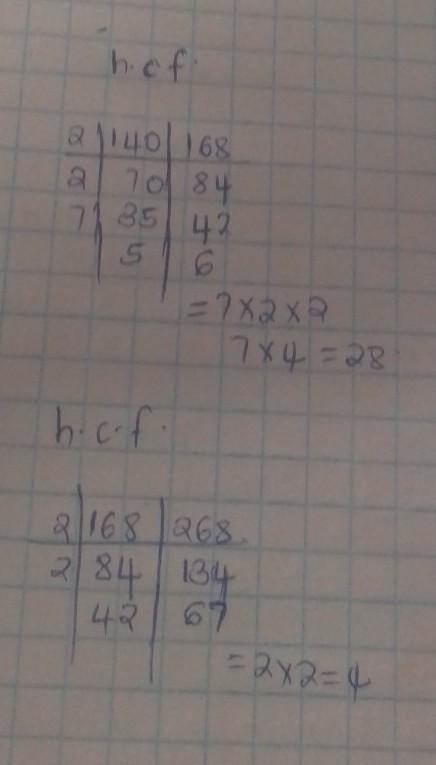 h.c.f.
2 140 168
2 70 84
7 35 42
5 6
= 7 × 2 × 2
7 × 4 = 28
h.c.f.
2 168 268
2 84 134
42 67
= 2 × 2 = 4